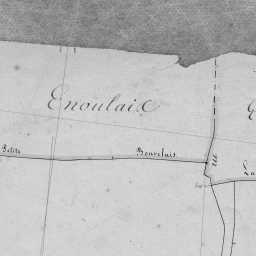 Enoulaie
Petite
Bouvelait
La